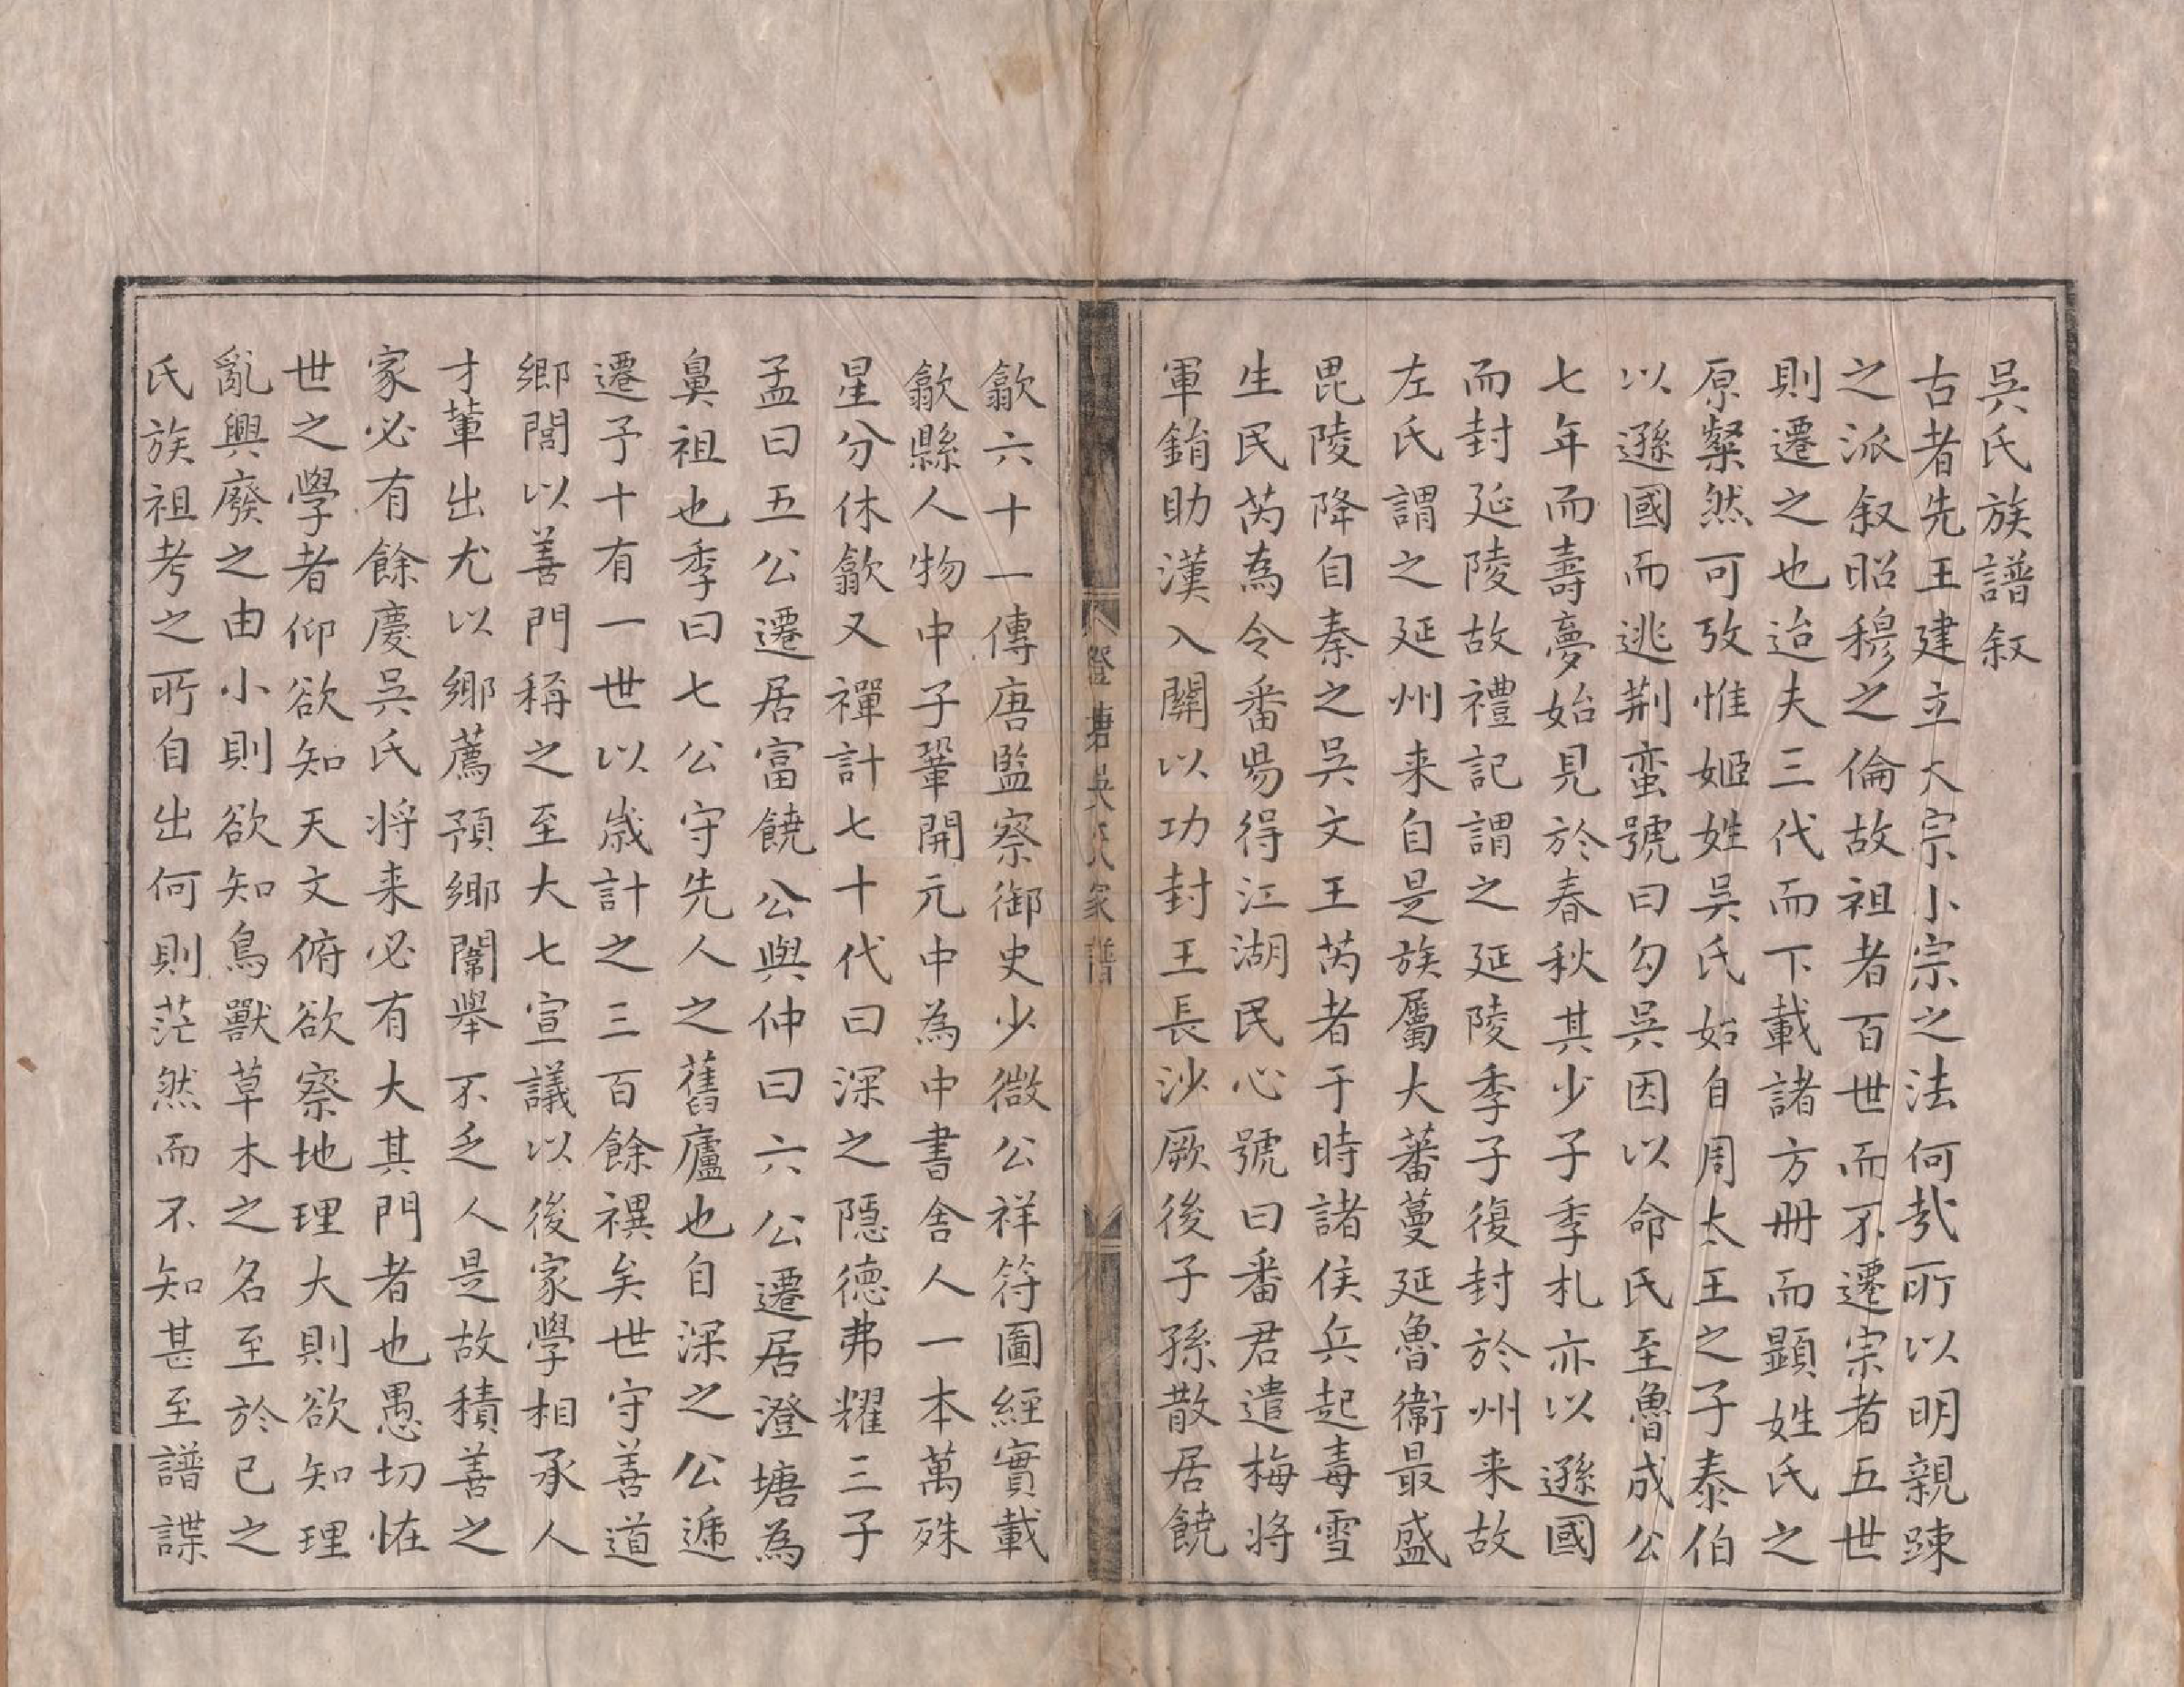 吳氏族譜叙
古者先王建立大宗小宗之法何㢤所以明親踈
之派叙昭穆之倫故祖者百世而不遷宗者五世
則遷之也迨夫三代而下載諸方冊而顯姓氏之
原粲然可攷惟姬姓吳氏始自周太王之子泰伯
以遜國而逃荆蛮號曰勾吳因以命氏至魯成公
七年而壽夢始見於春秋其少子季札亦以遜國
而封延陵故禮記謂之延陵季子復封於州来故
左氏謂之延州来自是族屬大蕃蔓延魯衞最盛
毘陵降自秦之吳文王芮者于時諸侯兵起毒雪
生民芮為令番昜得江湖民心號曰番君遣梅将
軍鋗助漢入關以功封王長沙厥後子孫散居饒
澄塘吳氏家譜
歙六十一傳唐監察御史少微公祥符圖經實載
歙縣人物中子鞏開元中為中書舍人一本萬殊
星分休歙又禪計七十代曰深之隱德弗耀三子
孟曰五公遷居富饒公與仲曰六公遷居澄塘為
鼻祖也季曰七公守先人之舊廬也自深之公遞
遷予十有一世以歳計之三百餘禩矣世守善道
鄉閭以善門稱之至大七宣議以後家學相承人
才輩出尤以鄉薦預鄉闈舉不乏人是故積善之
家必有餘慶吳氏将来必有大其門者也愚切恠
世之學者仰欲知天文俯欲察地理大則欲知理
亂興廢之由小則欲知鳥獸草木之名至於已之
氏族祖考之所自出何則茫然而不知甚至譜諜